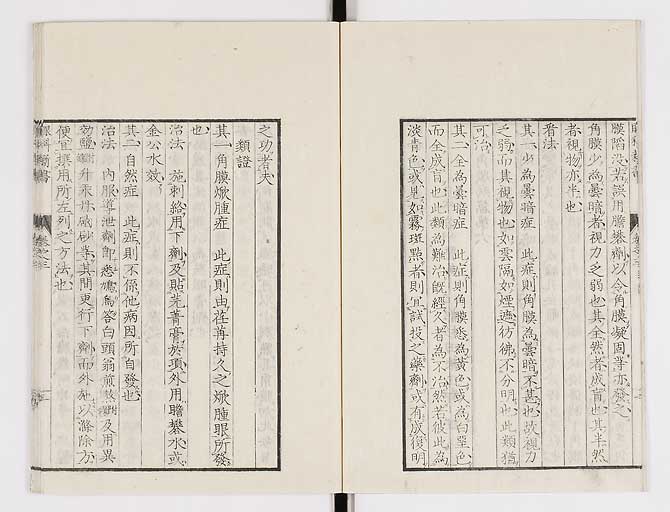 膜陷没若誤用膽礬劑以令角膜凝固等亦發之
角膜少為曇暗者視力之弱也其全然者成盲也其半然
者視物亦半也
看法
其一少為曇暗症 此症則角膜為雲暗不甚也故視力
之弱而其視物也如雲隔如煙遮彷彿不分明也此類猶
可治
其二全為曇暗症 此症則角膜悉為黄色或為白堊色
而全成盲也此類為難治既經久者為不治然若彼此為
淡青色或見如霧斑點者則宜試投之藥劑或有成復明
之功者夫
類證
其一角膜焮腫症 此症則由荏苒持久之焮腫眼所發
也
治法 施刺絡用下劑及貼芫菁膏於項外用膽礬水或
金公水效
其二自然症 此症則不係他病因所自發也
治法 内服導泄劑即悉鳩答白頭翁煎及用異
性鹽 升汞 砒 砂等其間更行下劑而外施以滌除方
便宜撰用所左列之方法也
眼科新書
卷之三